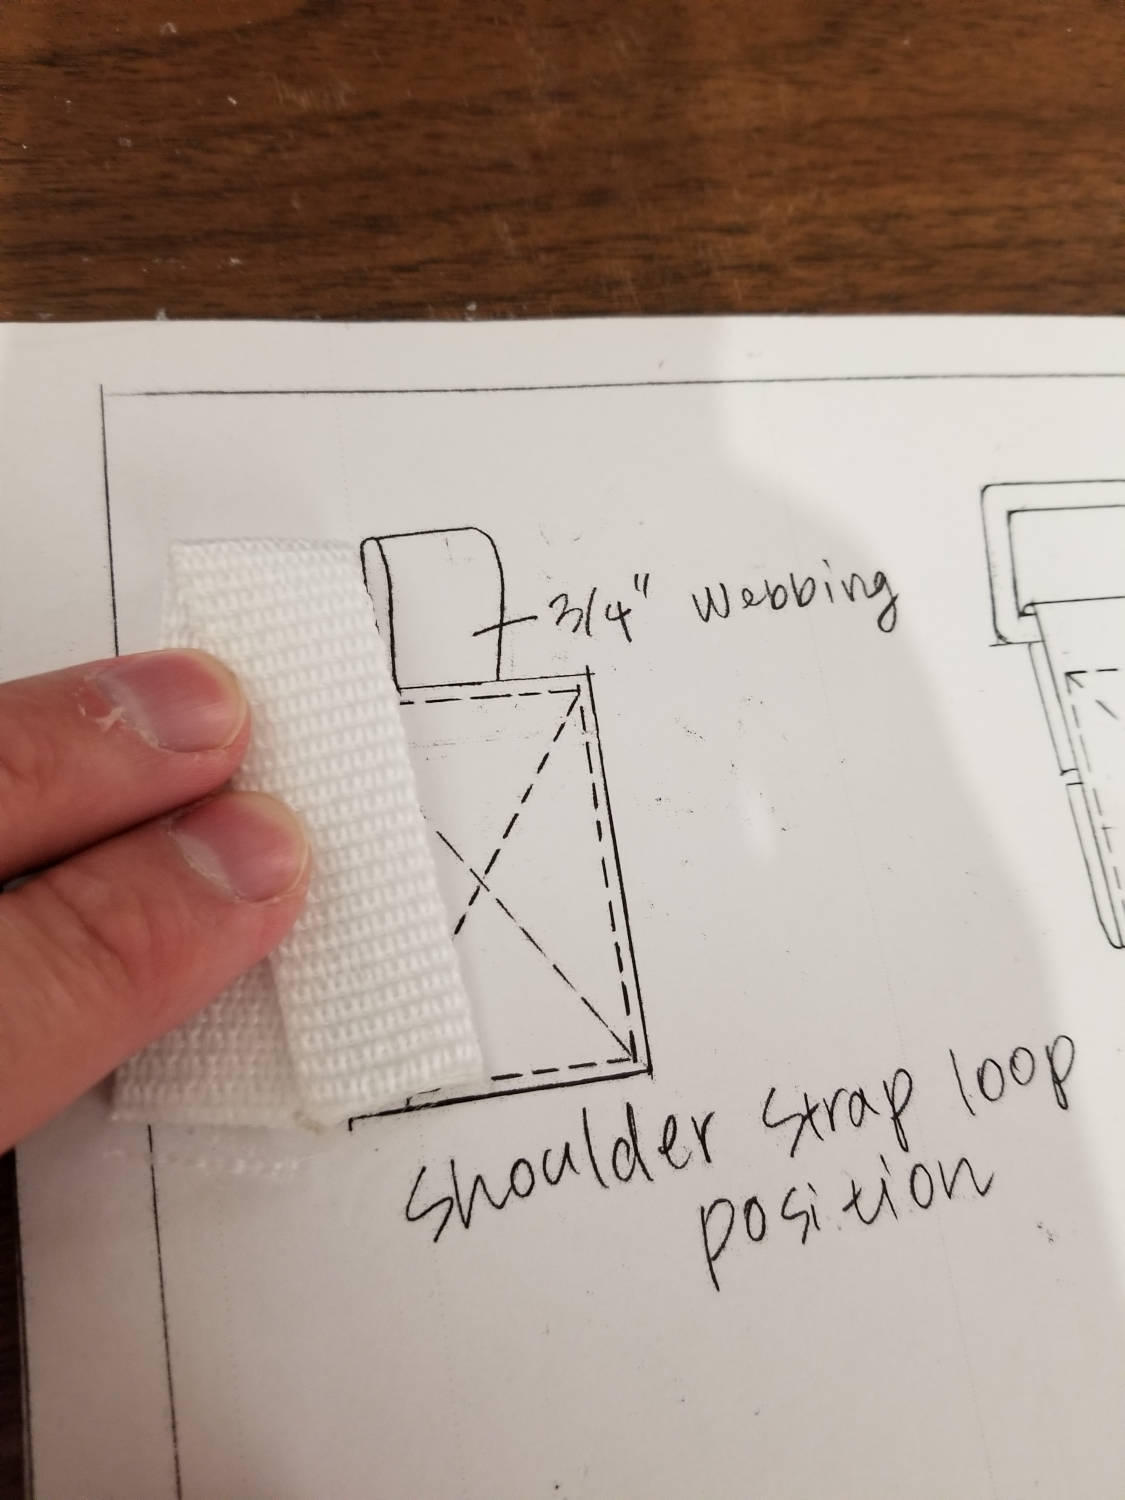 3/4" Webbing
Shoulder strap loop
position